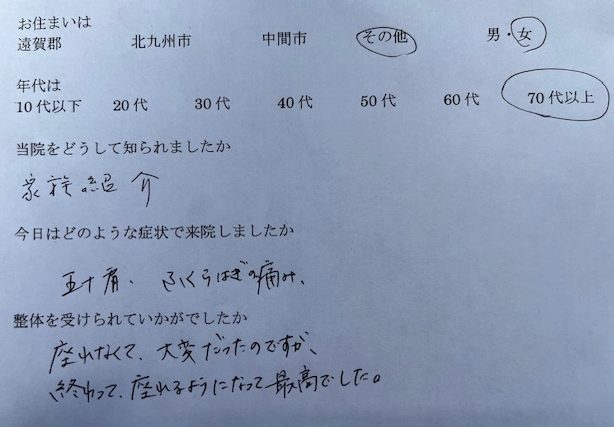 お住まいは
遠賀郡 北九州市 中間市 その他 男・女
年代は
10代以下 20代 30代 40代 50代 60代 70代以上
当院をどうして知られましたか
家族紹介
今日はどのような症状で来院しましたか
五十肩、ふくらはぎの痛み、
整体を受けられていかがでしたか
座れなくて、大変だったのですが、
終わって、座れるようになって最高でした。